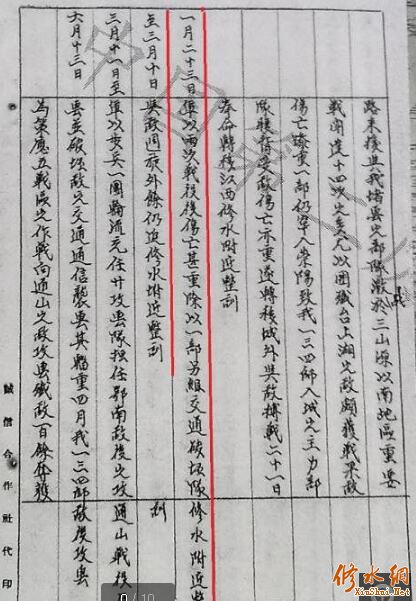 路來援與我堵擊之部隊激戰於三山源以南地區重要
戰鬥達十四次之多尤以圍殲台上湖之敵頗獲戰果敵
傷亡慘重一部仍竄入崇陽致我一三四師入城之主力部
隊腹背受敵傷亡亦重遂轉移城外與敵搏戰二十一日
奉命轉移江西修水附近整訓
一月二十三日 軍以兩次戰役後傷亡甚重除以一部另組交通破壞隊 修水附近整
至三月十日 與敵週旋外餘仍返修水附近整訓 訓
三月十一日至 軍以步兵一團輪流充任攻擊隊担任鄂南敵後之攻 通山戰役
六月十三日 擊並破壞敵之交通通信襲擊其輜重四月我一三四師敵後攻擊
為策應五戰區之作戰向通山之敵攻擊殲敵一百餘奪獲
誠信合作社代印
0/10
修水網
XiuShui.Net